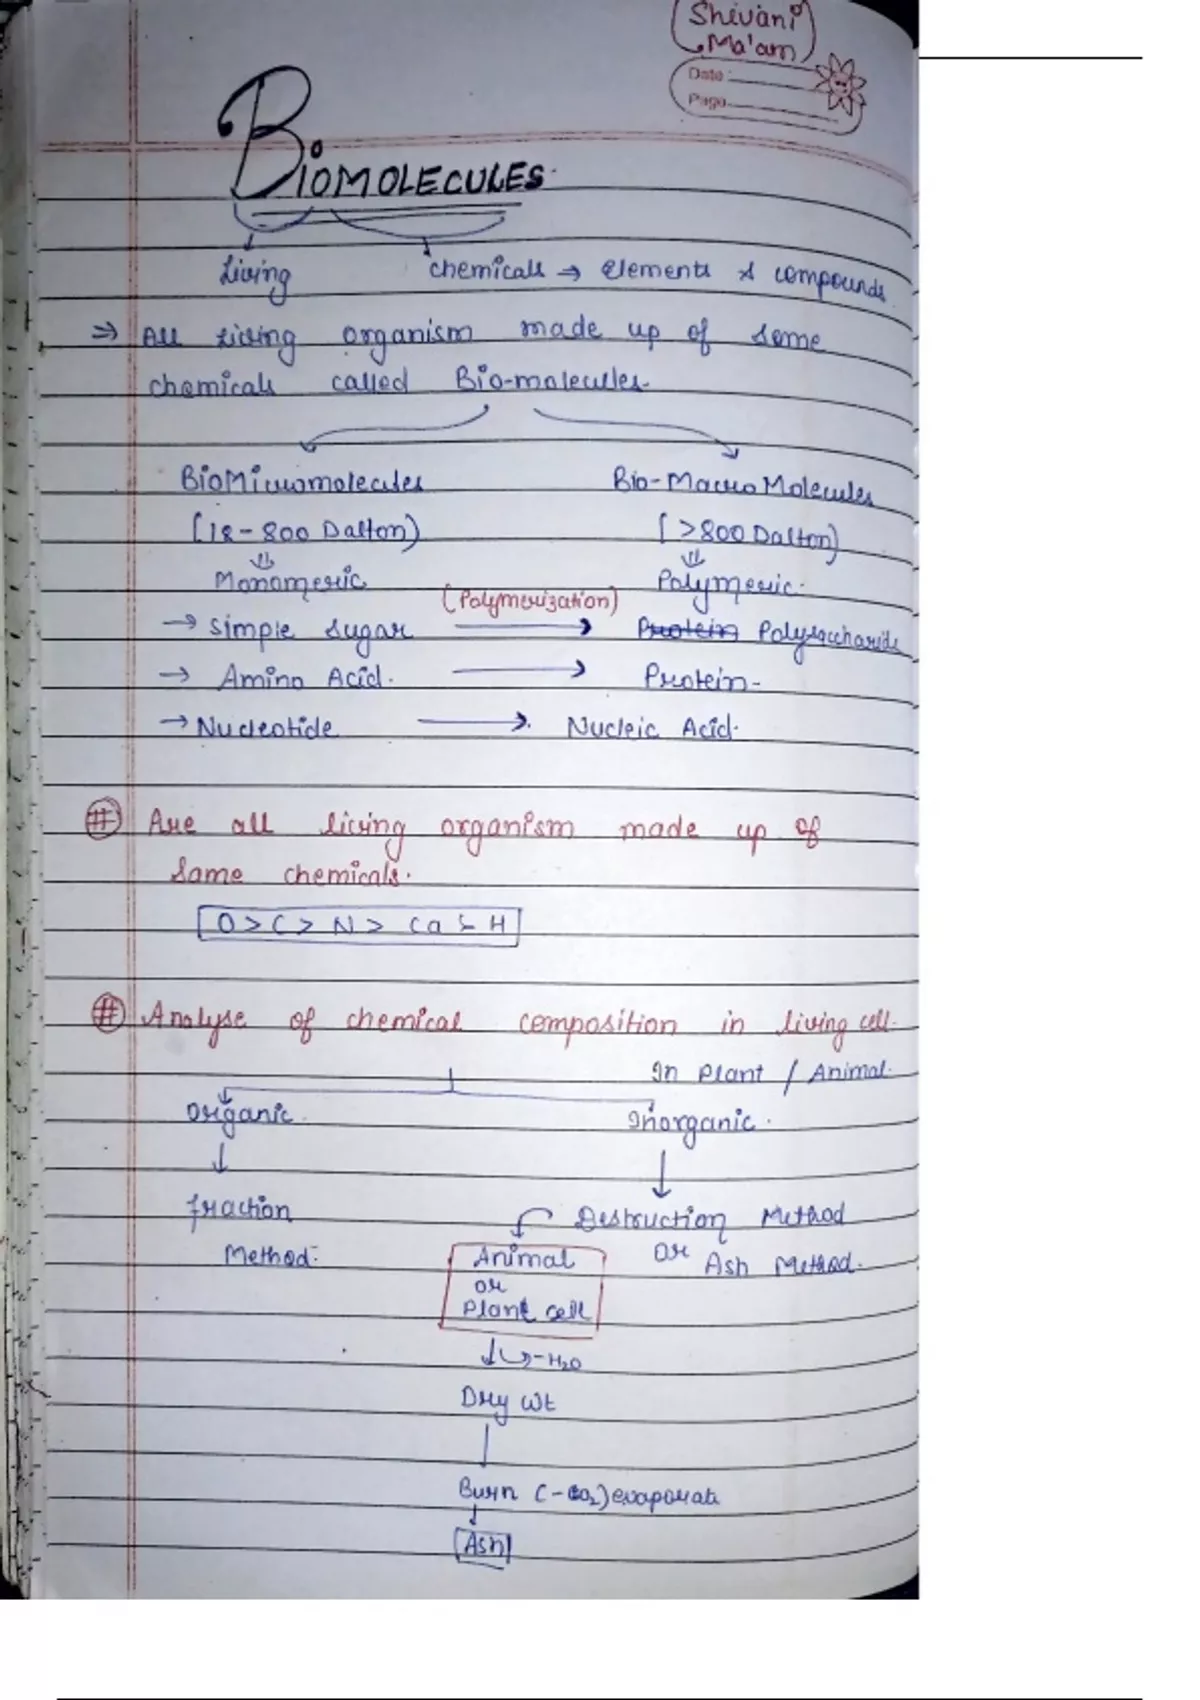 Shivani
Ma'am
Date :
Page
BIOMOLECULES
Living chemicals → Elements & compounds
⇒ All living organism made up of some
chemicals called Bio-molecules.
BioMicromolecules Bio-MacroMolecules
(18-800 Dalton) (>800 Dalton)
Monomeric Polymeric.
(Polymerization)
→ simple sugar → Protein Polysaccharide
→ Amino Acid. → Protein-
→ Nucleotide → Nucleic Acid.
# Are all living organism made up of
same chemicals.
O > C > N > Ca > H
# Analyse of chemical composition in living cell.
In Plant / Animal.
Organic. Inorganic.
fraction Destruction Method
Method. or Ash Method.
Animal
or
Plant cell
-H₂O
Dry wt
Burn (-CO₂) evaporate
Ash